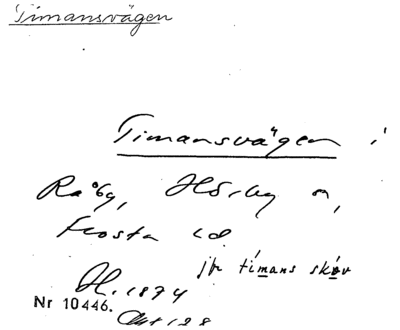 Timansvägen
Timansvägen i
Råby, Hörby sn,
Frosta hd
jfr timans skov
1874
Nr 10446.